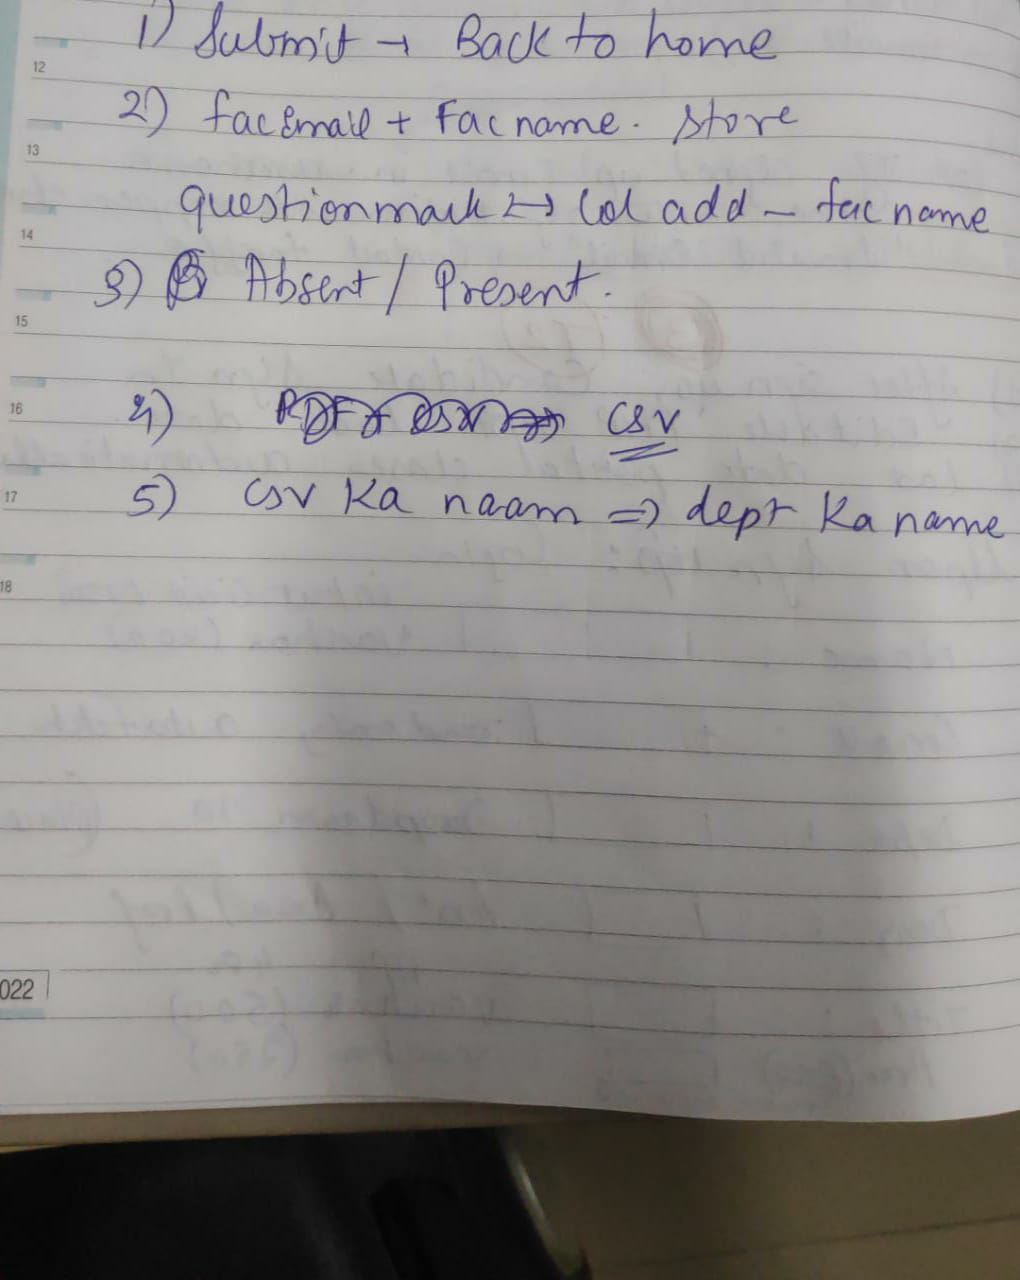 1) Submit → Back to home
12
2) facEmail + Facname. store
13
questionmark ↔ Col add - facname
14
3) Absent / Present.
15
16
4) CSV
17
5) CSV Ka naam => dept Ka name
18
022